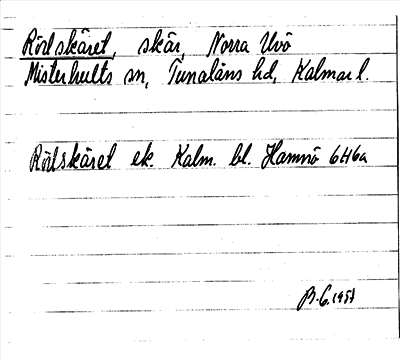 Rödskäret, skär, Norra Uvö
Misterhults sn, Tunaläns hd, Kalmar l.
Rödskäret ek. Kalm. bl. Hamnö 6H6a